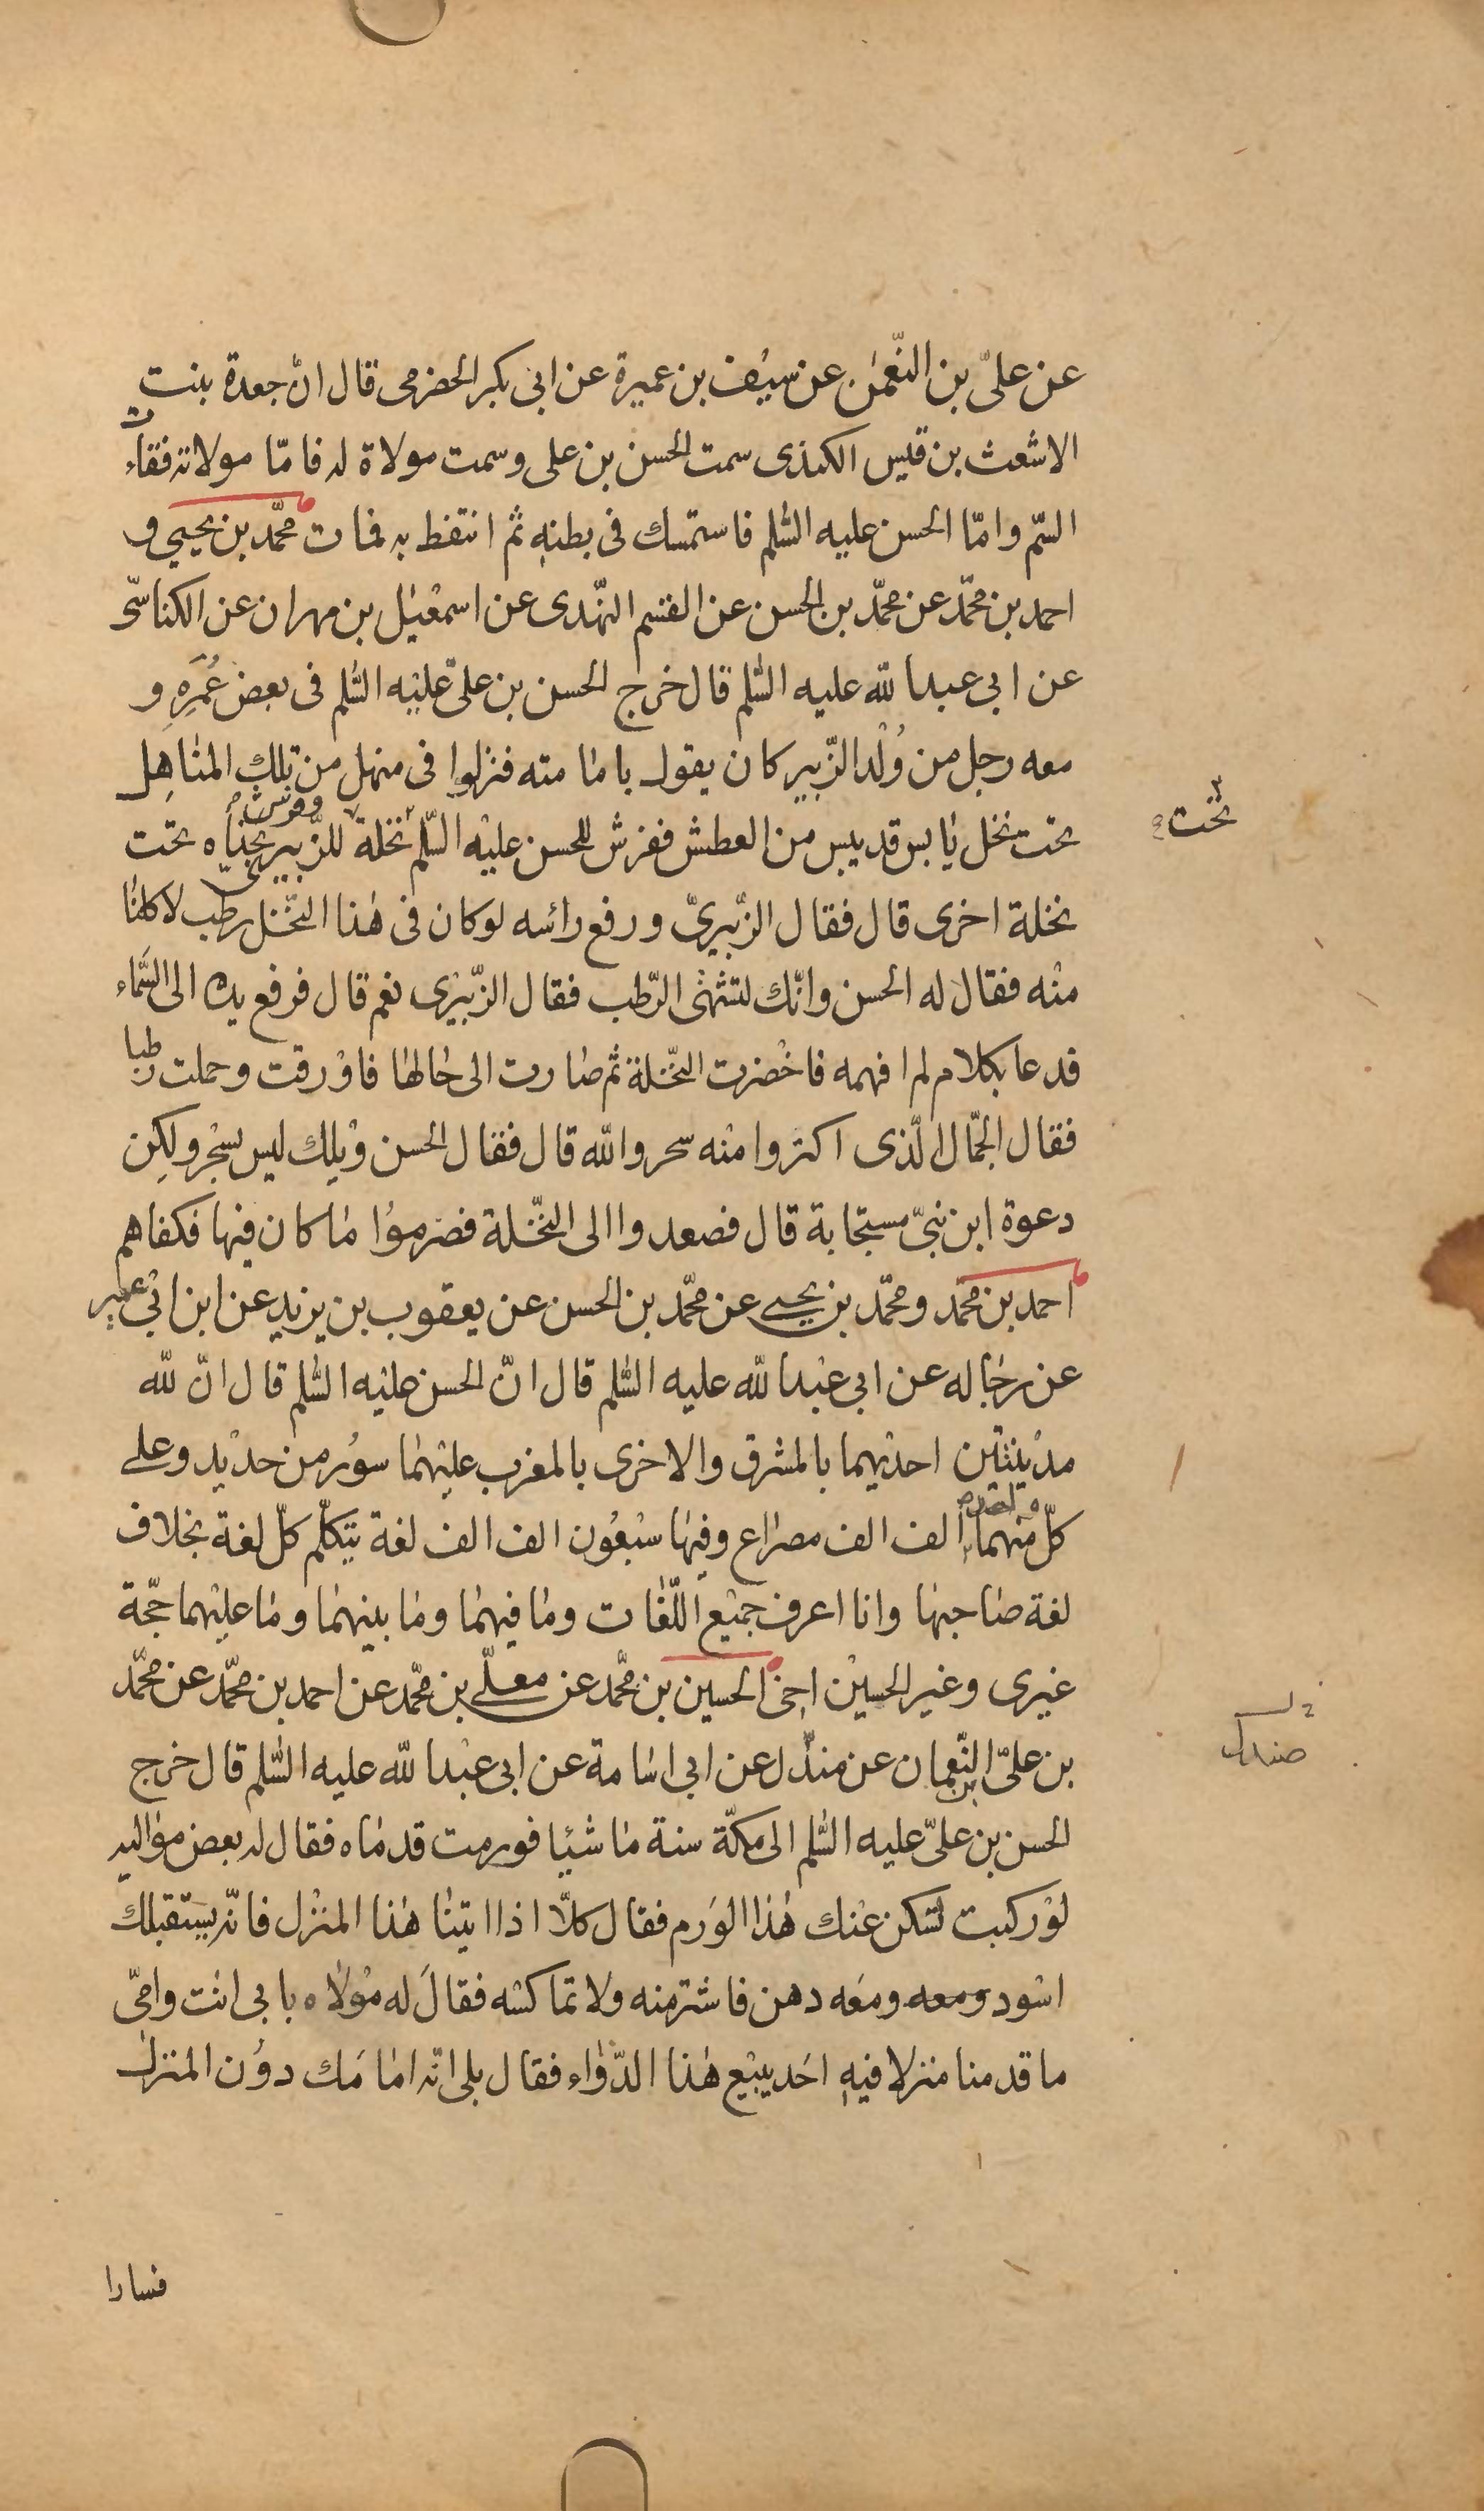 عن علىّ بن النّعمٰن عن سيف بن عميرة عن ابى بكر الحضرمى قال انّ جعدة بنت
الاشعث بن قيس الكندى سمت الحسن بن على وسمت مولاة له فامّا مولاته فقاءت
السّم وامّا الحسن عليه السّلم فاستمسك فى بطنه ثم انتفط به فمات محمّد بن يحيى و
احمد بن محمّد عن محمّد بن الحسن عن القسم النّهدى عن اسمعيل بن مهران عن الكناسىّ
عن ابى عبد الله عليه السّلم قال خرج الحسن بن علىّ عليه السّلم فى بعض عُمَرِه و
معه رجل من وُلْد الزّبير كان يقول بامامته فنزلوا فى منهل من تلك المناهِل
تحت نخل يابس قد يبس من العطش ففرش للحسن عليه السّلم نخلة للزّبيرى بحذاه تحت
وفرش
تحت
نخلة اخرى قال فقال الزّبيرىّ ورفع رائسه لو كان فى هٰذا النّخل رطب لاكلنا
منه فقال له الحسن وانّك لتشتهى الرّطب فقال الزّبيرى نعم قال فرفع يده الى السّماء
فدعا بكلام لم افهمه فاخضرت النّخلة ثم صارت الى حالها فاورقت وحملت رطبا
فقال الجمّال الّذى اكتروا منه سحر والله قال فقال الحسن ويلك ليس بسحْر ولكِن
دعوة ابن نبىّ مستجابة قال فصعدوا الى النّخلة فصرموا ما كان فيها فكفاهم
احمد بن محمّد ومحمّد بن يحيى عن محمّد بن الحسن عن يعقوب بن يزيد عن ابن ابى عمير
عن رجاله عن ابى عبد الله عليه السّلم قال انّ الحسن عليه السّلم قال انّ لله
مدينتين احديهما بالمشرق والاخرى بالمغرب عليهما سُور من حديد وعلى
كلّ منهما الف الف مصراع وفيها سبعُون الف الف لغة يتكلّم كلّ لغة بخلاف
لغة صاحبها وانا اعرف جميع اللّغات وما فيهما وما بينهما وما عليهما حجّة
غيرى وغير الحسين اخى الحسين بن محمّد عن معلّى بن محمّد عن احمد بن محمّد عن محمّد
بن علىّ بن النّعمان عن مندل عن ابى اسامة عن ابى عبد الله عليه السّلم قال خرج
صندل
الحسن بن علىّ عليه السّلم الى مكّة سنة ماشيًا فورمت قدماه فقال له بعض مواليه
لو ركبت لسكن عنك هٰذا الوَرم فقال كلّا اذا اتينا هٰذا المنزل فانّه يستقبلك
اسْود ومعه ومعَه دهن فاشتر منه ولا تماكسْه فقالَ له موْلاه بابى انت وامّى
ما قدمنا منزلا فيه احَد يبيْع هٰذا الدّواء فقال بلى انّه امامَك دوُن المنزل
فسارا